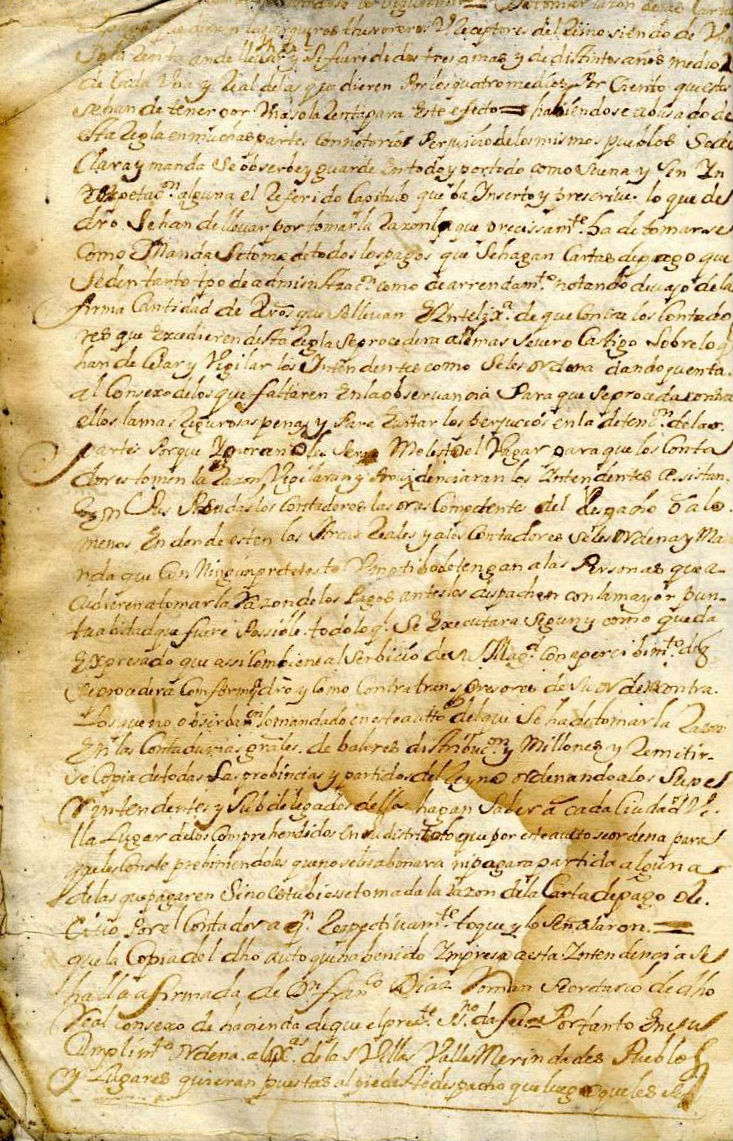 que dieren los Arqueros thesoreros y Receptores del Reino siendo de Una
sola Renta an de llebar y si fuere de dos tres o mas y de distintos años medio R
de Cada Una y Real de las que dieren Por los quatro medios Por Ciento que estos
se han de tener por Una sola Renta para Este efecto = habiendose abusado de
esta Regla en muchas partes con notorio Perjuicio de los mismos pueblos Se de
Clara y manda Se observe y guarde En todo y por todo como Suena y Sin In
terpetacn alguna el Referido Capitulo que ba Inserto y prescrive lo que de
dro Se han de llevar por tomar la Razon la que precissamte ha de tomarse
como Manda Se tome de todos los pagos que Se hagan Cartas de pago que
Se den tanto tpo de administracn como de arrendamto notando devajo de la
firma Cantidad de Drōs que llevan En Inteligxa de que Contra los Contado
res que Excedieren desta Regla Se procedera al mas Severo Castigo Sobre lo q
han de Celar y Vigilar los Intendentes como Se les ordena dando quenta
al Consexo de los que faltaren En la observancia Para que Se proceda contra
ellos las mas Rigurosas penas y Para Evitar los perjucios en la detencn de las
partes Porque Ygnorando la Seria Molesto el Vagar para que los Conta
dores tomen la Razon Vigilaran y Providenciaran los Intendentes assistan
En Sus Residas los Contadores las oras Competentes del Despacho o a lo
menos En donde esten las Arcas Reales y a los Contadores Se les ordena y Ma
nda que Con Ningun pretesto ni motibo detengan a las Personas que a
Cudieren a tomar la Razon de los Pagos antes los despachen con la mayor pun
tualidad que fuere Possible todo lo q. Se Executara Segun y como queda
Expresado que assi Combiene al Serbicio de Su Magd con apercibimto de q
Se procedera Conforme a dro y como Contra transgresores de Su orden contra
Los que no obserbaren lo mandado en este autto del que Se ha de tomar la Razon
En las Contadurias grāles de balores distribucn y Millones y Remitir
se Copia de todas Las probincias y partidos del Reyno ordenando a los Super
Yntendentes y Subdelegados dellas hagan Saber a cada Ciudad Vi
lla Lugar de los Comprehendidos En su distrito lo que por este autto se ordena para
que les Conste prebiniendoles que no se les abonara ni pagara partida alguna
de las que pagaren Sino estubiesse tomada la Razon de la Carta de pago o Re
civo Por el Contador a qn Respectivamte toque y lo Señalaron =
que la Copia del dho auto que ha benido Impresa a esta Intendencia Se
halla a firmada de Dn franco Diaz Roman Secretario de dho
Real Consexo de hacienda de que el preste Ssno da fee = Por tanto En su
Cumplimto ordena a las de las Villas Valles Merindades Pueblos
y Lugares que eran puestas al pie deste despacho que luego que les Sea